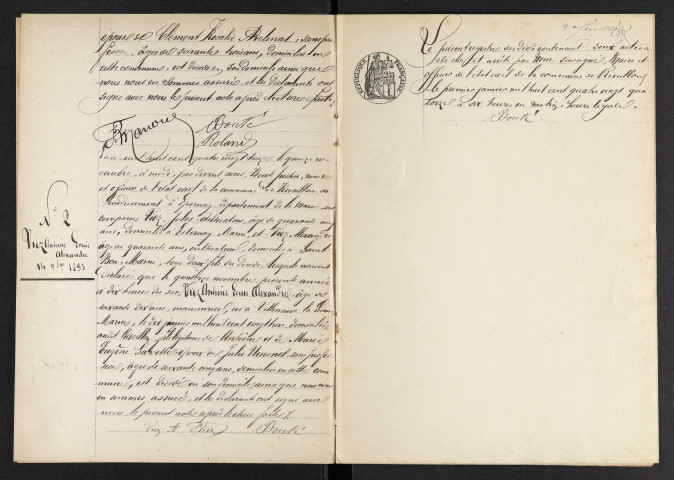 épouse de Clément Rosalie Melina, sans pro
fession, âgée de soixante trois ans, domiciliée en
cette commune, est décédé en son domicile ainsi que
nous nous en sommes assuré, et les déclarants ont
signé avec nous le présent acte après lecture faite.
Bouté
Roland
N° 2
Viez Antoine Louis
Alexandre
14 9bre 1893
L'an mil huit cent quatre vingt treize le quinze no
vembre, à midi, par devant nous Bouté Justin, maire
et officier de l'état civil de la commune de
arrondissement d'Epernay, département de la Marne, ont
comparu Viez Jules, cultivateur, âgé de quarante
ans, domicilié à Esternay, Marne et Viez Alexandre
âgé de quarante ans, cultivateur, domicilié à Saint
Bon, Marne, tous deux fils du décédé, lesquels nous ont
déclaré que le quatorze novembre présente année
à dix heures du soir, Viez Antoine Louis Alexandre, âgé de
soixante dix ans, manouvrier, né à Villeneuve la
Marne, le dix janvier mil huit cent vingt trois, domicilié
fils légitime de Antoine et de Marie
Eugénie époux de Julie sans profes
sion, âgée de soixante onze ans, domiciliée en cette com
mune, est décédé en son domicile ainsi que nous nous
en sommes assuré, et les déclarants ont signé avec
nous le présent acte après lecture faite.
Viez A Viez Bouté
RÉPUBLIQUE FRANÇAISE
Le présent registre des décès contenant deux actes a
été clos et arrêté par nous soussigné Maire et
officier de l'état civil de la commune de
le premier janvier mil huit cent quatre vingt qua
torze à six heures du matin, heure légale.
Bouté